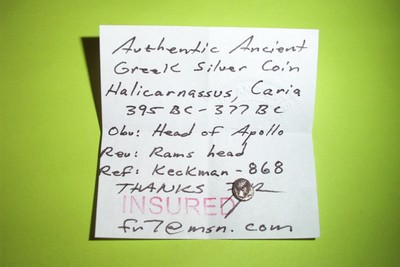 Authentic Ancient
Greek Silver Coin
Halicarnassus, Caria
395 BC - 377 BC
Obv: Head of Apollo
Rev: Rams head
Ref: Keckman - 868
THANKS
INSURED
fr7@msn.com